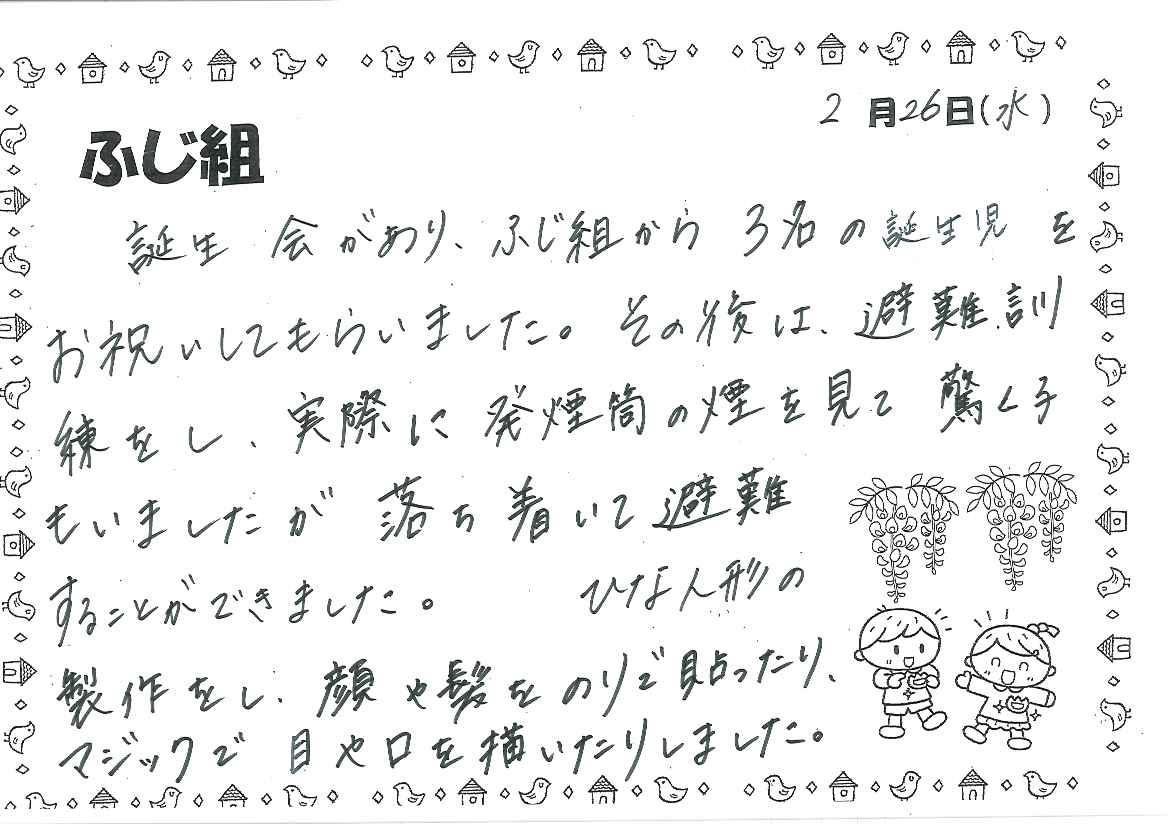 2月26日(水)
ふじ組
誕生会があり、ふじ組から3名の誕生児を
お祝いしてもらいました。その後は、避難訓
練をし、実際に発煙筒の煙を見て驚く子
もいましたが落ち着いて避難
することができました。 ひな人形の
製作をし、顔や髪をのりで貼ったり、
マジックで目や口を描いたりしました。